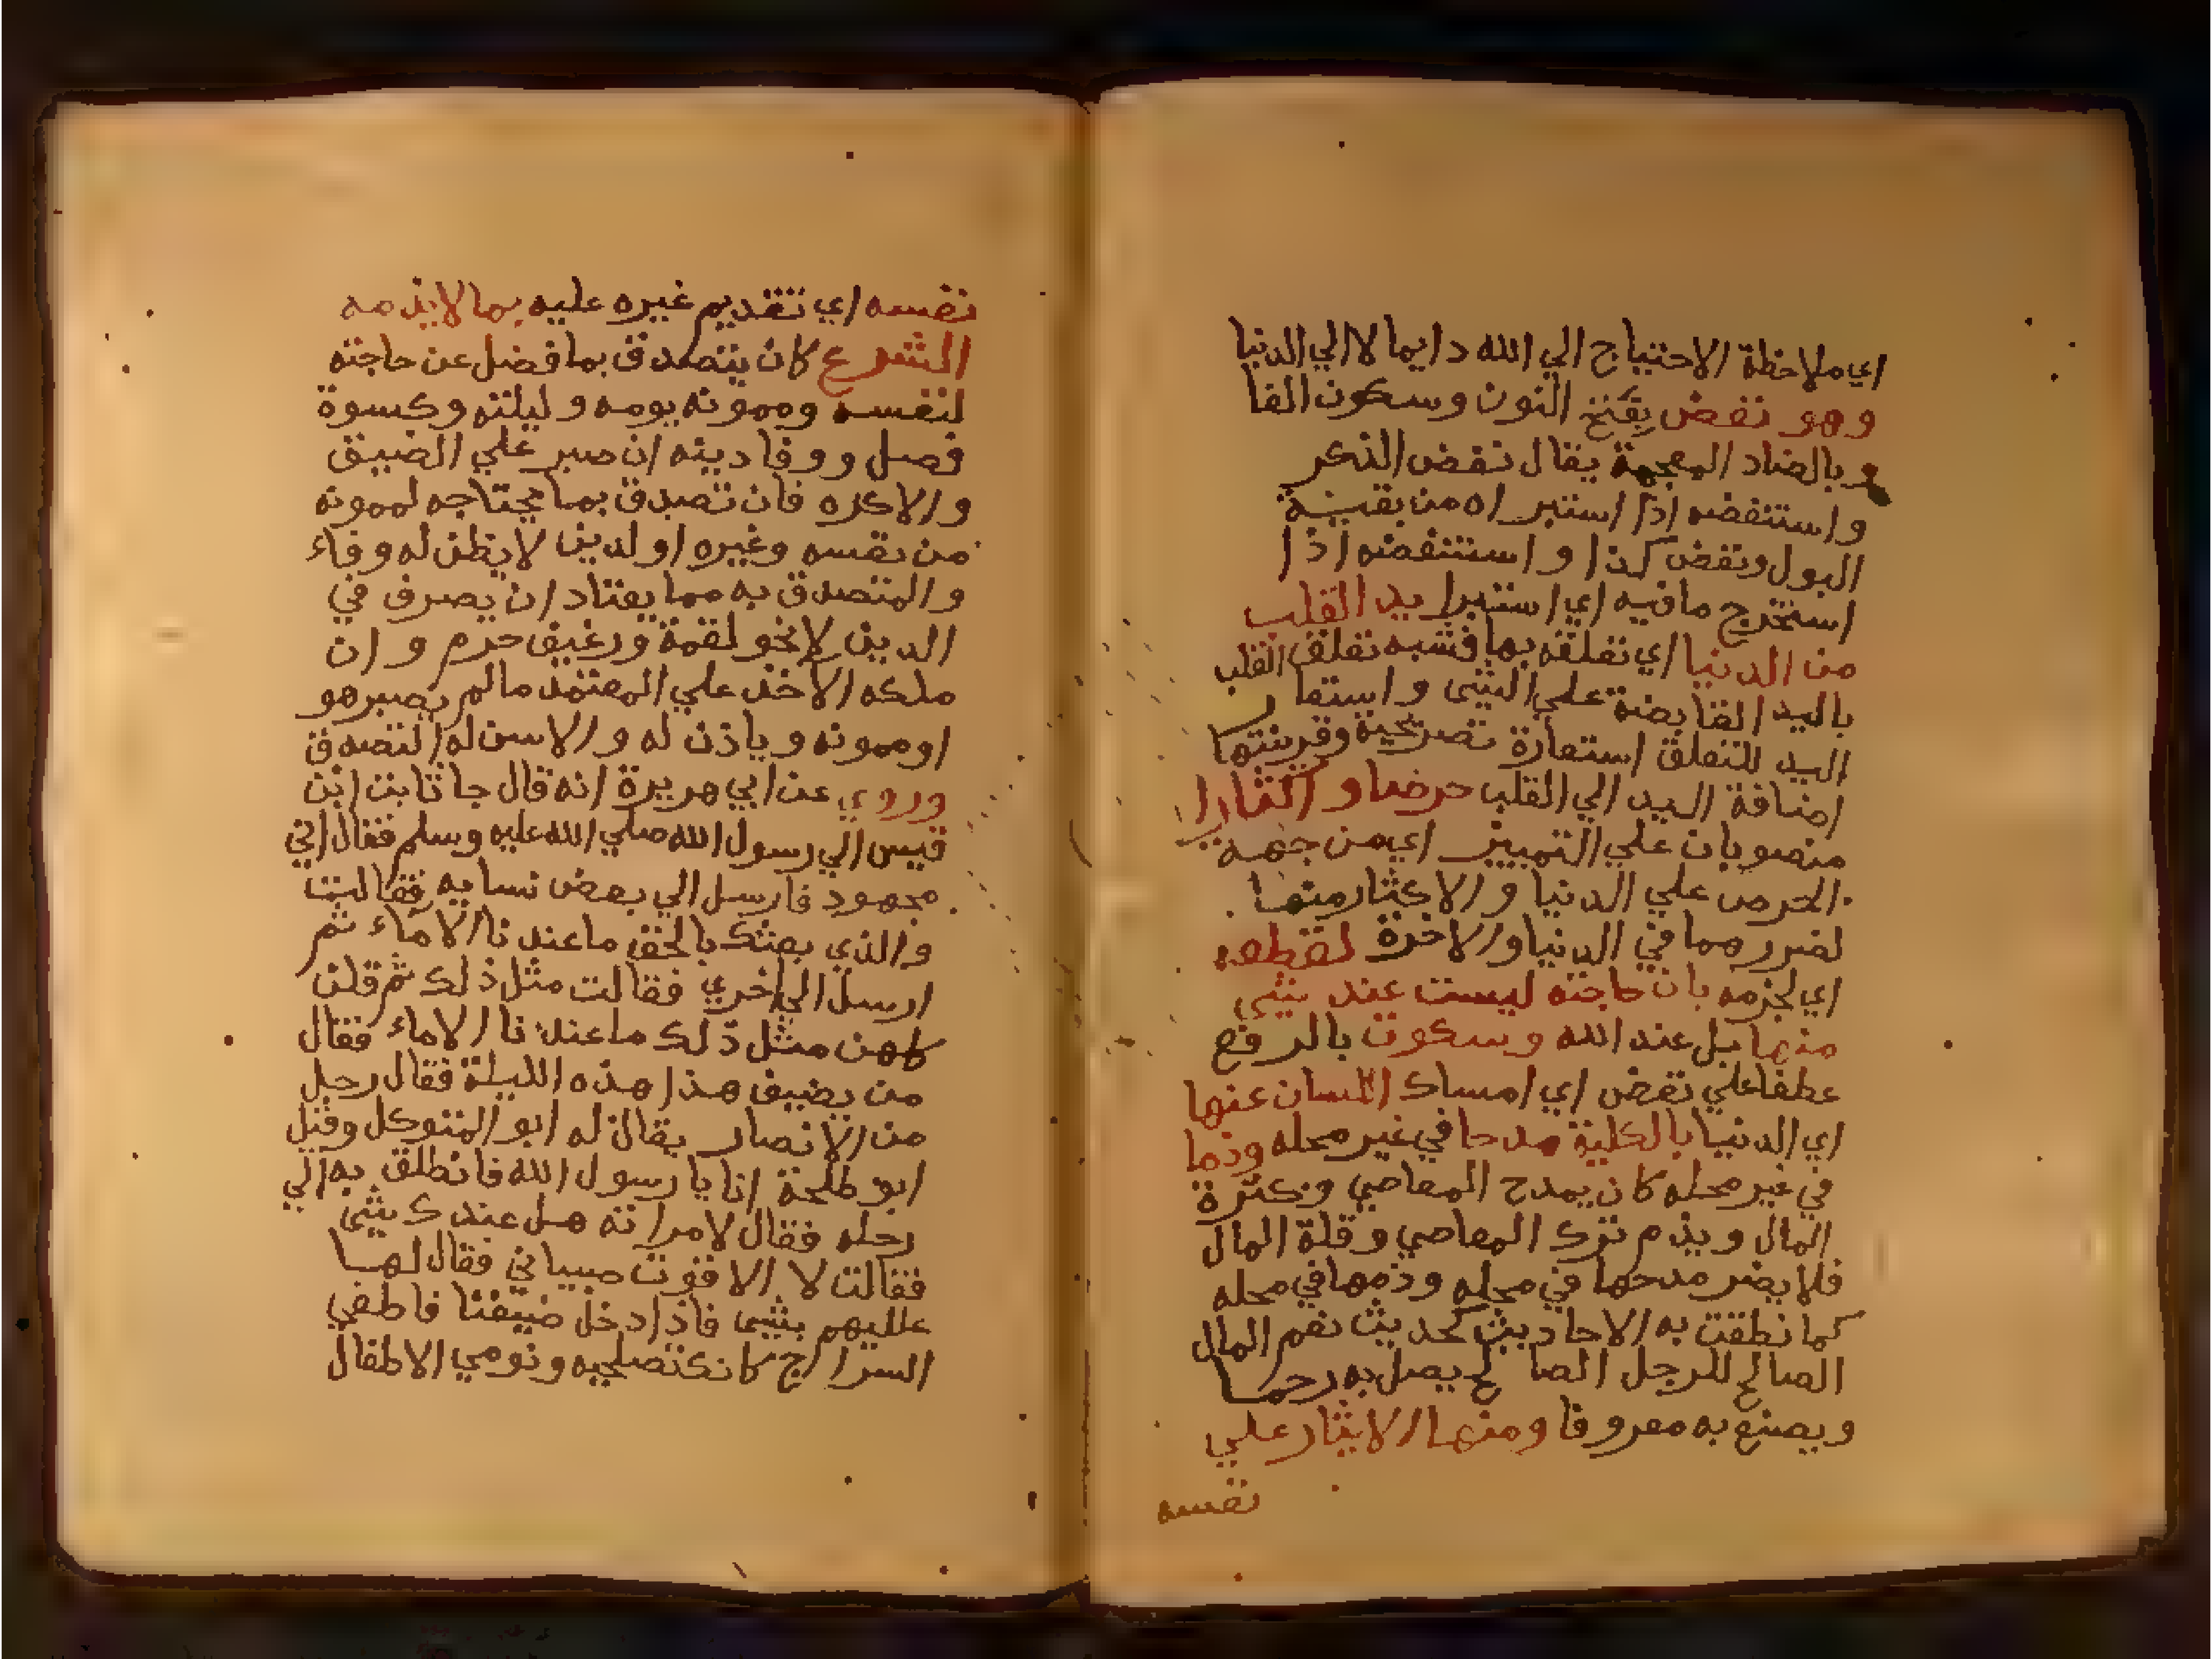 اي ملاحظة الاحتياج الي الله دايما لا الي الدنيا
وهو نفض بفتح النون وسكون الفا
وبالضاد المعجمة يقال نفض الذكر
واستنفضه اذا استبراه من بقية
البول ونفض كذا واستنفضه اذا
استخرج ما فيه اي استبرا يد القلب
من الدنيا اي تعلقه بها فشبه تعلق القلب
باليد القابضة علي الشي واستعار
اليد للتعلق استعارة تصريحية وقرينتها
اضافة اليد الي القلب حرضا واكثارا
منصوبان علي التمييز اي من جهة
الحرص علي الدنيا والاكثار منها
لضررهما في الدنيا والاخرة لقطعه
اي لجزمه بان حاجته ليست عند شي
منها بل عند الله وسكوت بالرفع
عطفا علي نفض اي امساك اللسان عنها
اي الدنيا بالكلية مدحا في غير محله وذما
في غير محله كان يمدح المعاصي وكثرة
المال ويذم ترك المعاصي وقلة المال
فلا يضر مدحها في محله وذمها في محله
كما نطقت به الاحاديث كحديث نعم المال
الصالح للرجل الصالح يصل به رحما
ويصنع به معروفا ومنها الايثار علي
نفسه
نفسه اي تقديم غيره عليه بما لا يذمه
الشرع كان يتصدق بما فضل عن حاجته
لنفسه وممونه يومه وليلته وكسوة
فصل ووفا دينه ان صبر علي الضيق
والاكره فان تصدق بما يحتاجه لممونه
من نفسه وغيره او لدين لا يظن له وفاء
والمتصدق به مما يعتاد ان يصرف في
الدين لا نحو لقمة ورغيف حرم وان
ملكه الاخذ علي المعتمد ما لم يصبر هو
او ممونه وياذن له والاسن له التصدق
وروي عن ابي هريرة انه قال جا ثابت ابن
قيس الي رسول الله صلي الله عليه وسلم فقال اني
مجهود فارسل الي بعض نسايه فقالت
والذي بعثك بالحق ما عندنا الا ماء ثم
ارسل الي اخري فقالت مثل ذلك ثم قلن
كلهن مثل ذلك ما عندنا الا ماء فقال
من يضيف هذا هذه الليلة فقال رجل
من الانصار يقال له ابو المتوكل وقيل
ابو طلحة انا يا رسول الله فانطلق به الي
رحله فقال لامراته هل عندك شي
فقالت لا الا قوت صبياني فقال لها
علليهم بشي فاذا دخل ضيفنا فاطفي
السراج كانك تصلحيه ونومي الاطفال